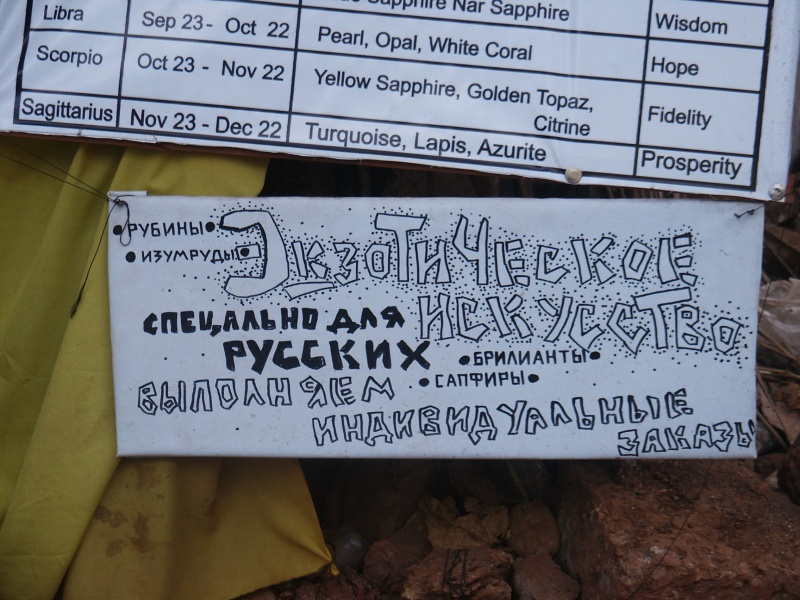 Sapphire Nar Sapphire
Libra Sep 23- Oct 22 Pearl, Opal, White Coral Wisdom
Scorpio Oct 23 - Nov 22 Yellow Sapphire, Golden Topaz, Citrine Hope
Sagittarius Nov 23 - Dec 22 Turquoise, Lapis, Azurite Fidelity
Prosperity
•РУБИНЫ•
•ИЗУМРУДЫ•
ЭКЗОТИЧЕСКОЕ
ИСКУССТВО
СПЕЦИАЛЬНО ДЛЯ
РУССКИХ
•БРИЛИАНТЫ•
•САПФИРЫ•
ВЫПОЛНЯЕМ
ИНДИВИДУАЛЬНЫЕ
ЗАКАЗЫ